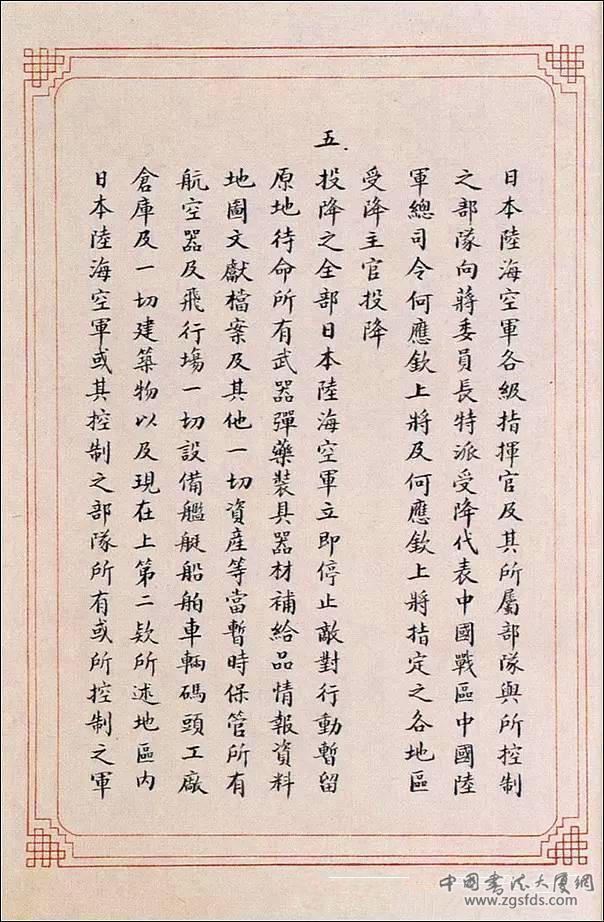 日本陸海空軍各級指揮官及其所屬部隊與所控制
之部隊向蔣委員長特派受降代表中國戰區中國陸
軍總司令何應欽上將及何應欽上將指定之各地區
受降主官投降
五.
投降之全部日本陸海空軍立即停止敵對行動暫留
原地待命所有武器彈藥裝具器材補給品情報資料
地圖文獻檔案及其他一切資產等當暫時保管所有
航空器及飛行場一切設備艦艇船舶車輛碼頭工廠
倉庫及一切建築物以及現在上第二款所述地區內
日本陸海空軍或其控制之部隊所有或所控制之軍
中國書法大厦網
www.zgsfds.com